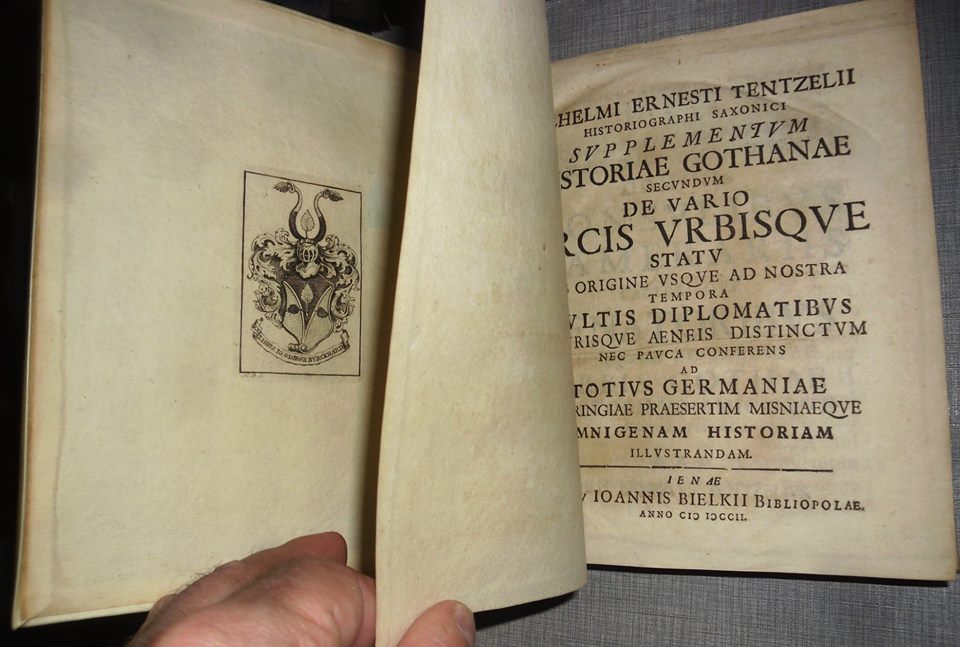 LIBRIS IO. GEORGII BVRCKHARD
HELMI ERNESTI TENTZELII
HISTORIOGRAPHI SAXONICI
SVPPLEMENTVM
STORIAE GOTHANAE
SECVNDVM
DE VARIO
RCIS VRBISQVE
STATV
ORIGINE VSQVE AD NOSTRA
TEMPORA
VLTIS DIPLOMATIBVS
RISQVE AENEIS DISTINCTVM
NEC PAVCA CONFERENS
AD
TOTIVS GERMANIAE
RINGIAE PRAESERTIM MISNIAEQVE
MNIGENAM HISTORIAM
ILLVSTRANDAM.
IENÆ
IOANNIS BIELKII BIBLIOPOLAE.
ANNO CIƆ IƆCCII.